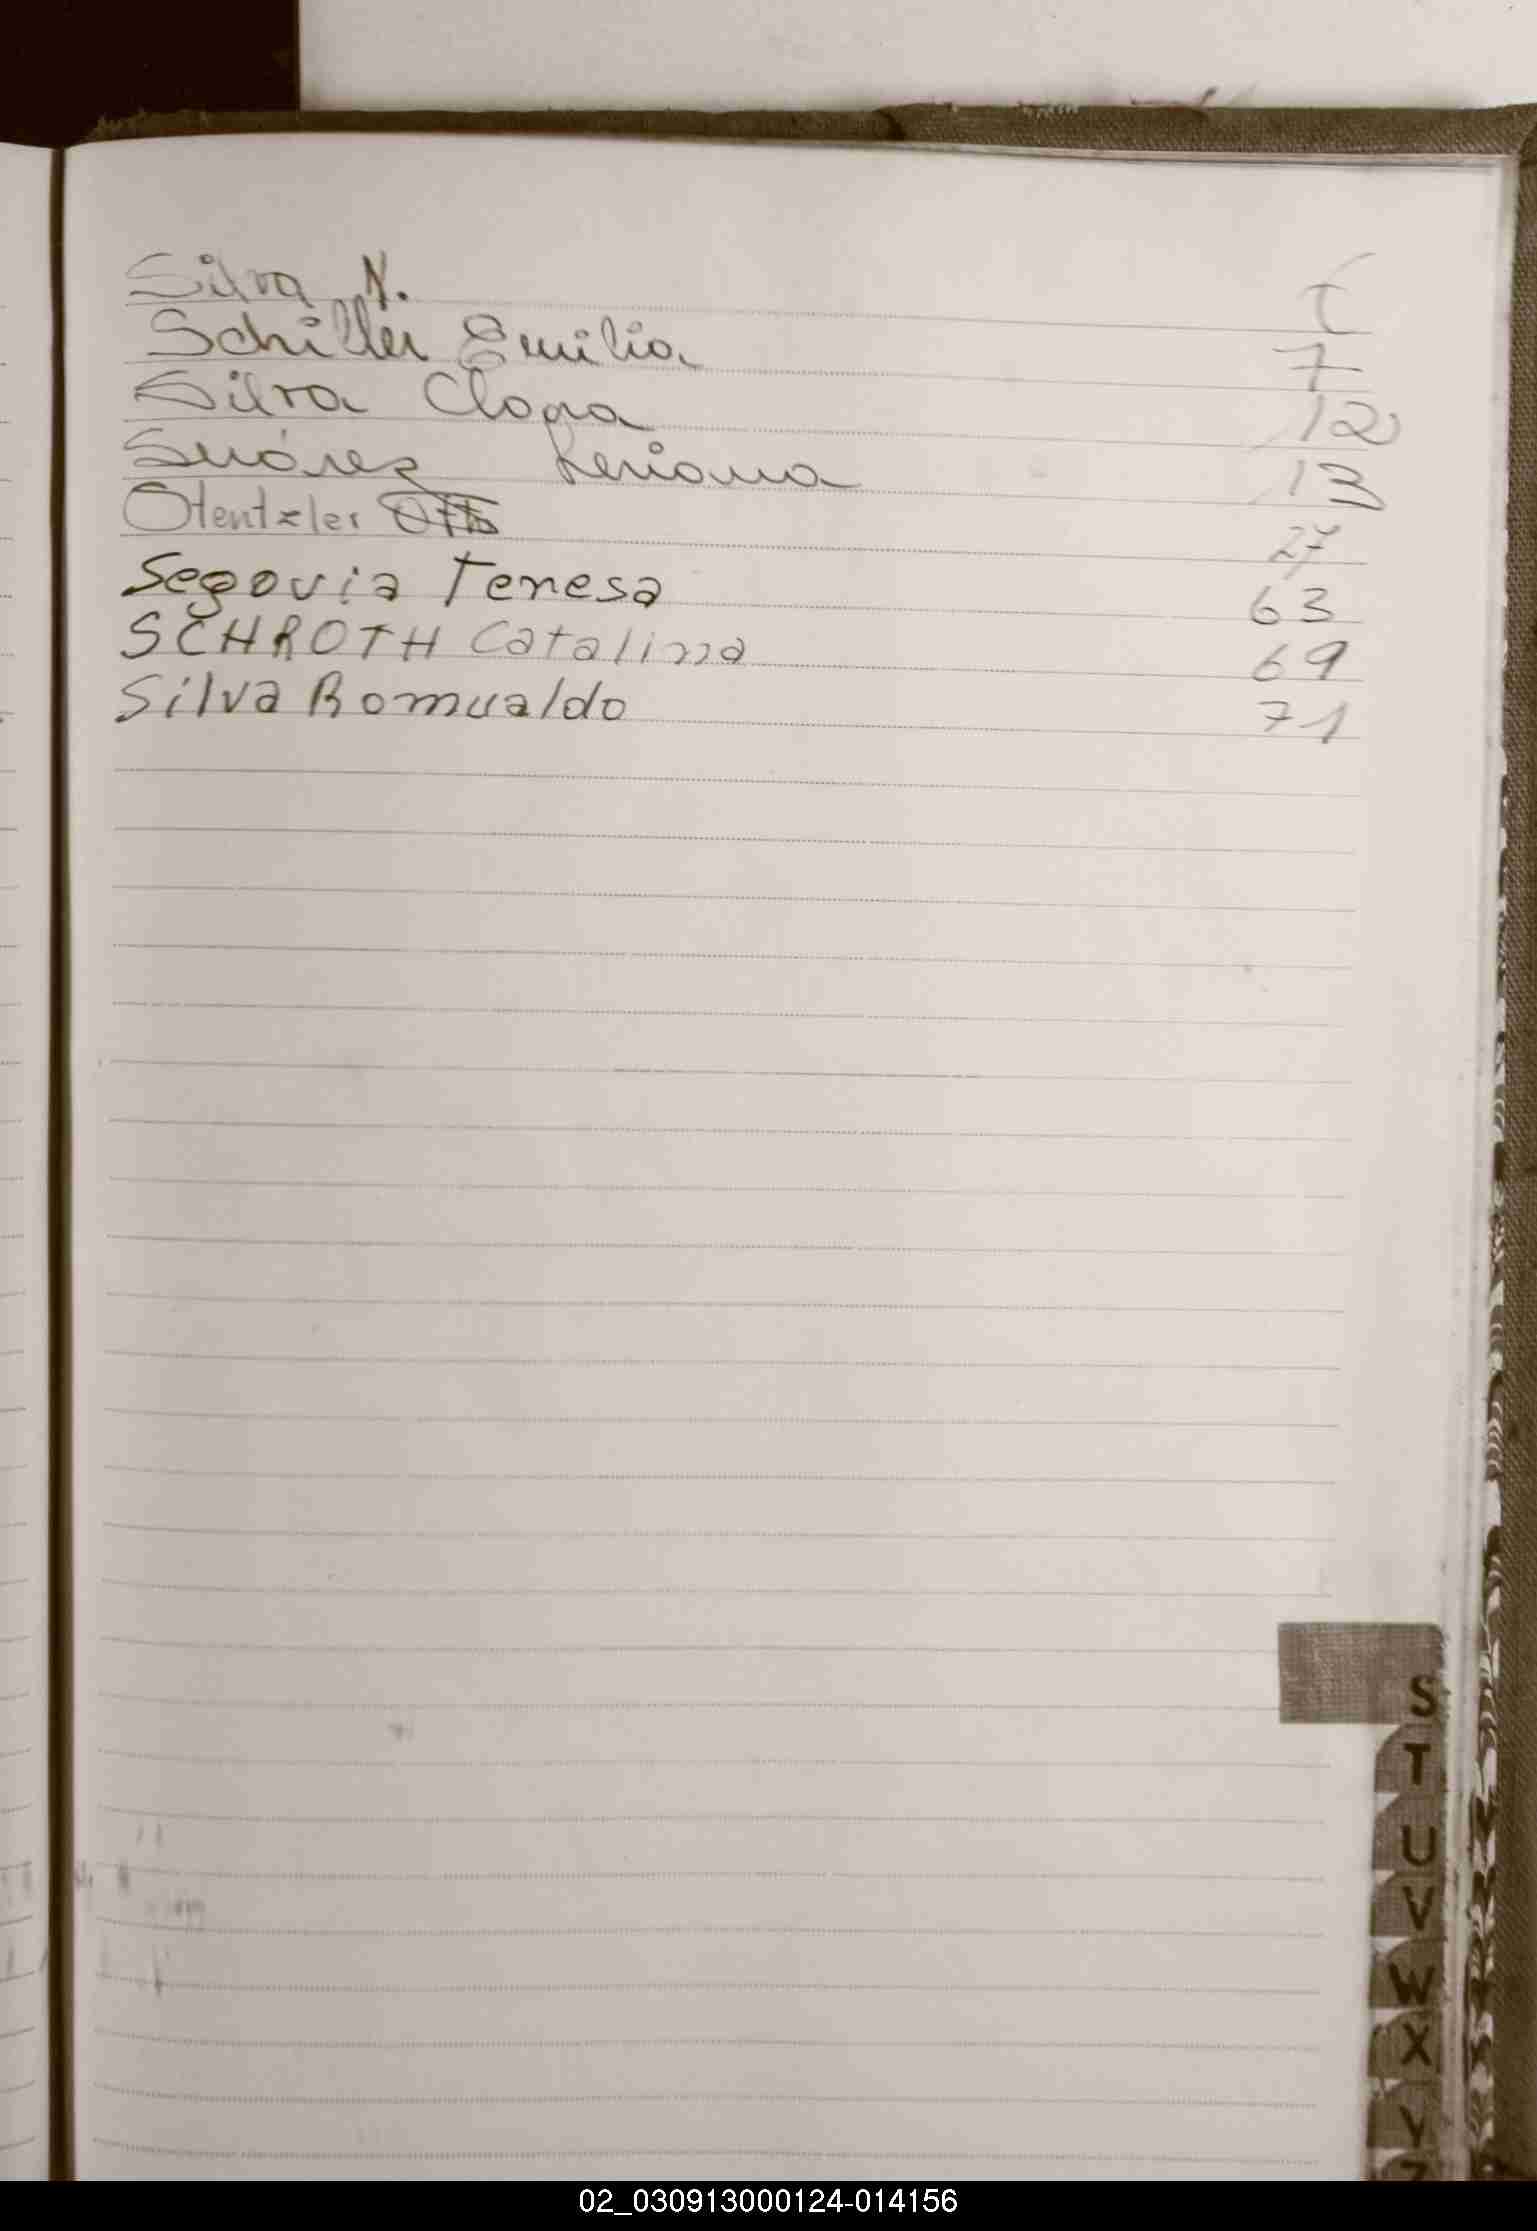 Silva N.
Schiller Emilia 7
Silva Clora 12
Suárez 13
Otentzler Otto 27
Segovia Teresa 63
SCHROTH Catalina 69
Silva Romualdo 71
S
T
U
V
W
X
Y
Z
02_030913000124-014156